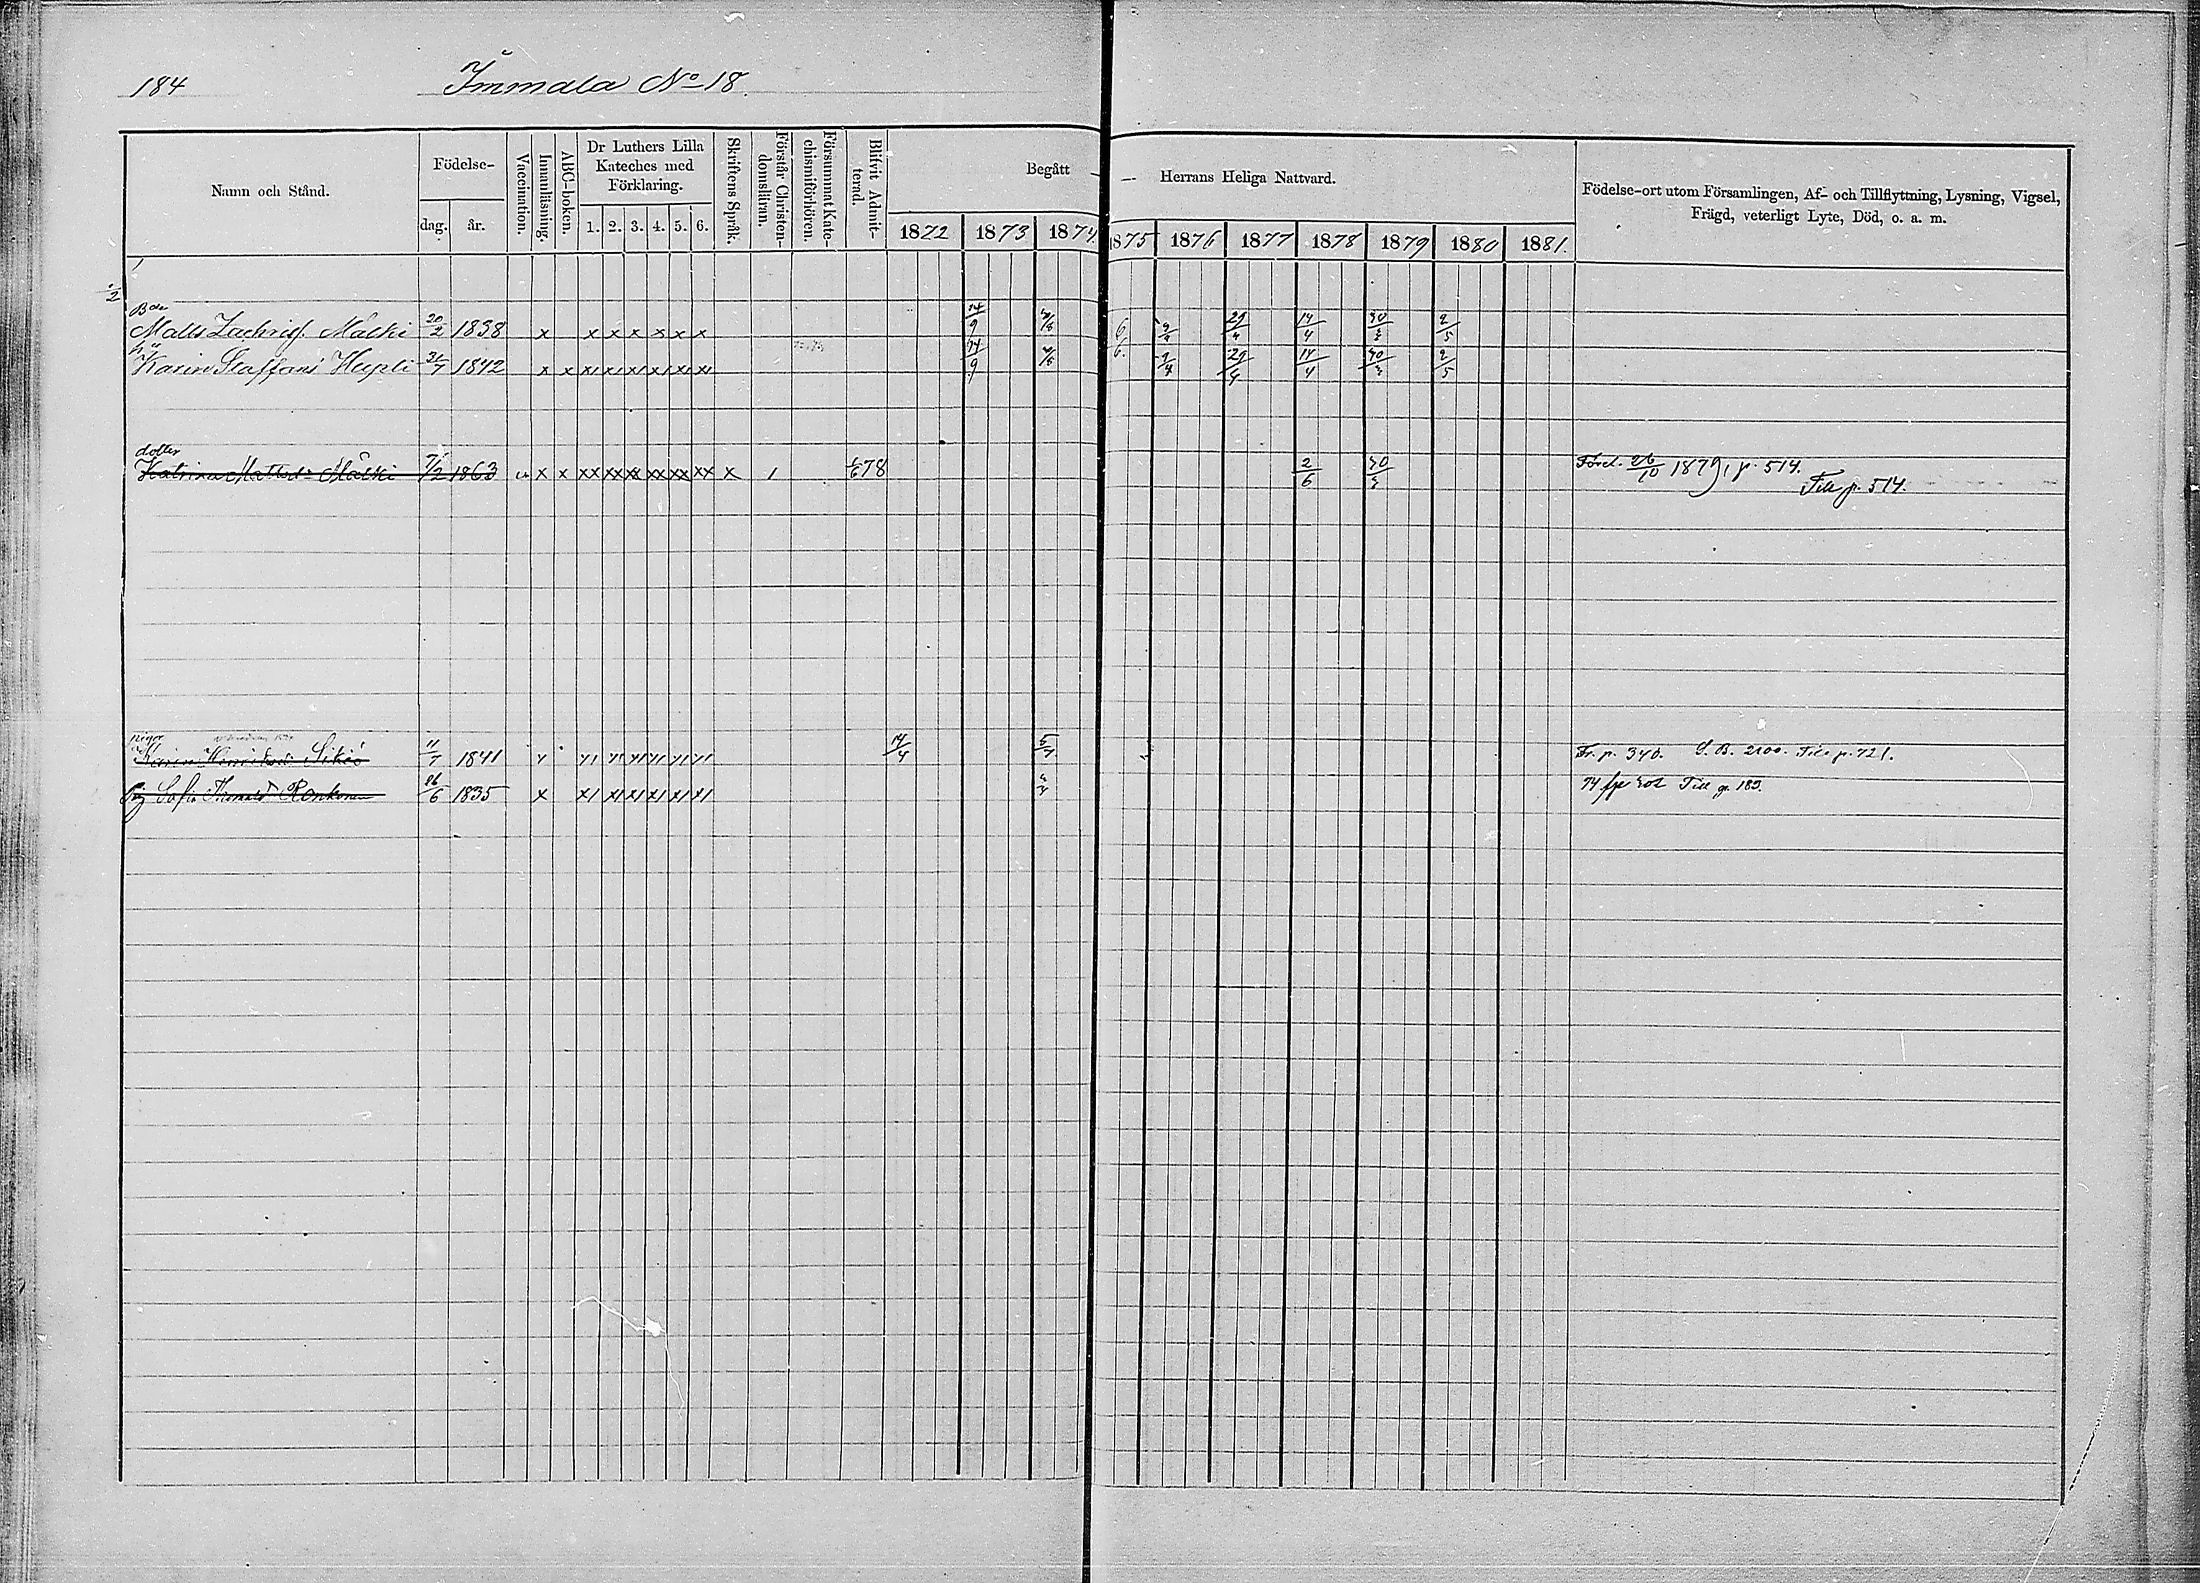 184
Immala No 18.
Namn och Stånd.
Födelse-
dag.
år.
Vaccination.
Innanläsning.
ABC-boken.
Dr Luthers Lilla
Kateches med
Förklaring.
1. 2. 3. 4. 5. 6.
Skriftens Språk.
Förstår Christen-
domsläran.
Försummat Kate-
chismiförhören.
Blifvit Admit-
terad.
Begått
Herrans Heliga Nattvard.
1872 1873 1874. 1875 1876 1877 1878 1879 1880 1881.
Födelse-ort utom Församlingen, Af- och Tillflyttning, Lysning, Vigsel,
Frägd, veterligt Lyte, Död, o. a. m.
1/2
Bde
Matts Zachrisf. Mälki 20/2 1838 x x x x x x x 14/9 6 29/4 14/4 30/3 2/5
Karin Staffansd Heepli 1842 x x x1 x1 x1 x1 x1 x1 14/9 6. 2/4 29/4 14/4 30/3 2/5
dotter
Katrina Mattsd: Mälki 7/2 1863 v x x xx xx xx xx xx xx x 1 1/6 78 2/6 30/3 Förel. 26/10 1879, p. 514.
Till p. 514.
Karin Henriksd: Sikiö 11/7 1841 14/4 5/4 Fr. p. 340. S. B. 2100. Till p. 721.
Pig Sofia Thomasd Ronkonen 26/6 1835 x x1 x1 x1 x1 x1 x1 74 Till p. 183.